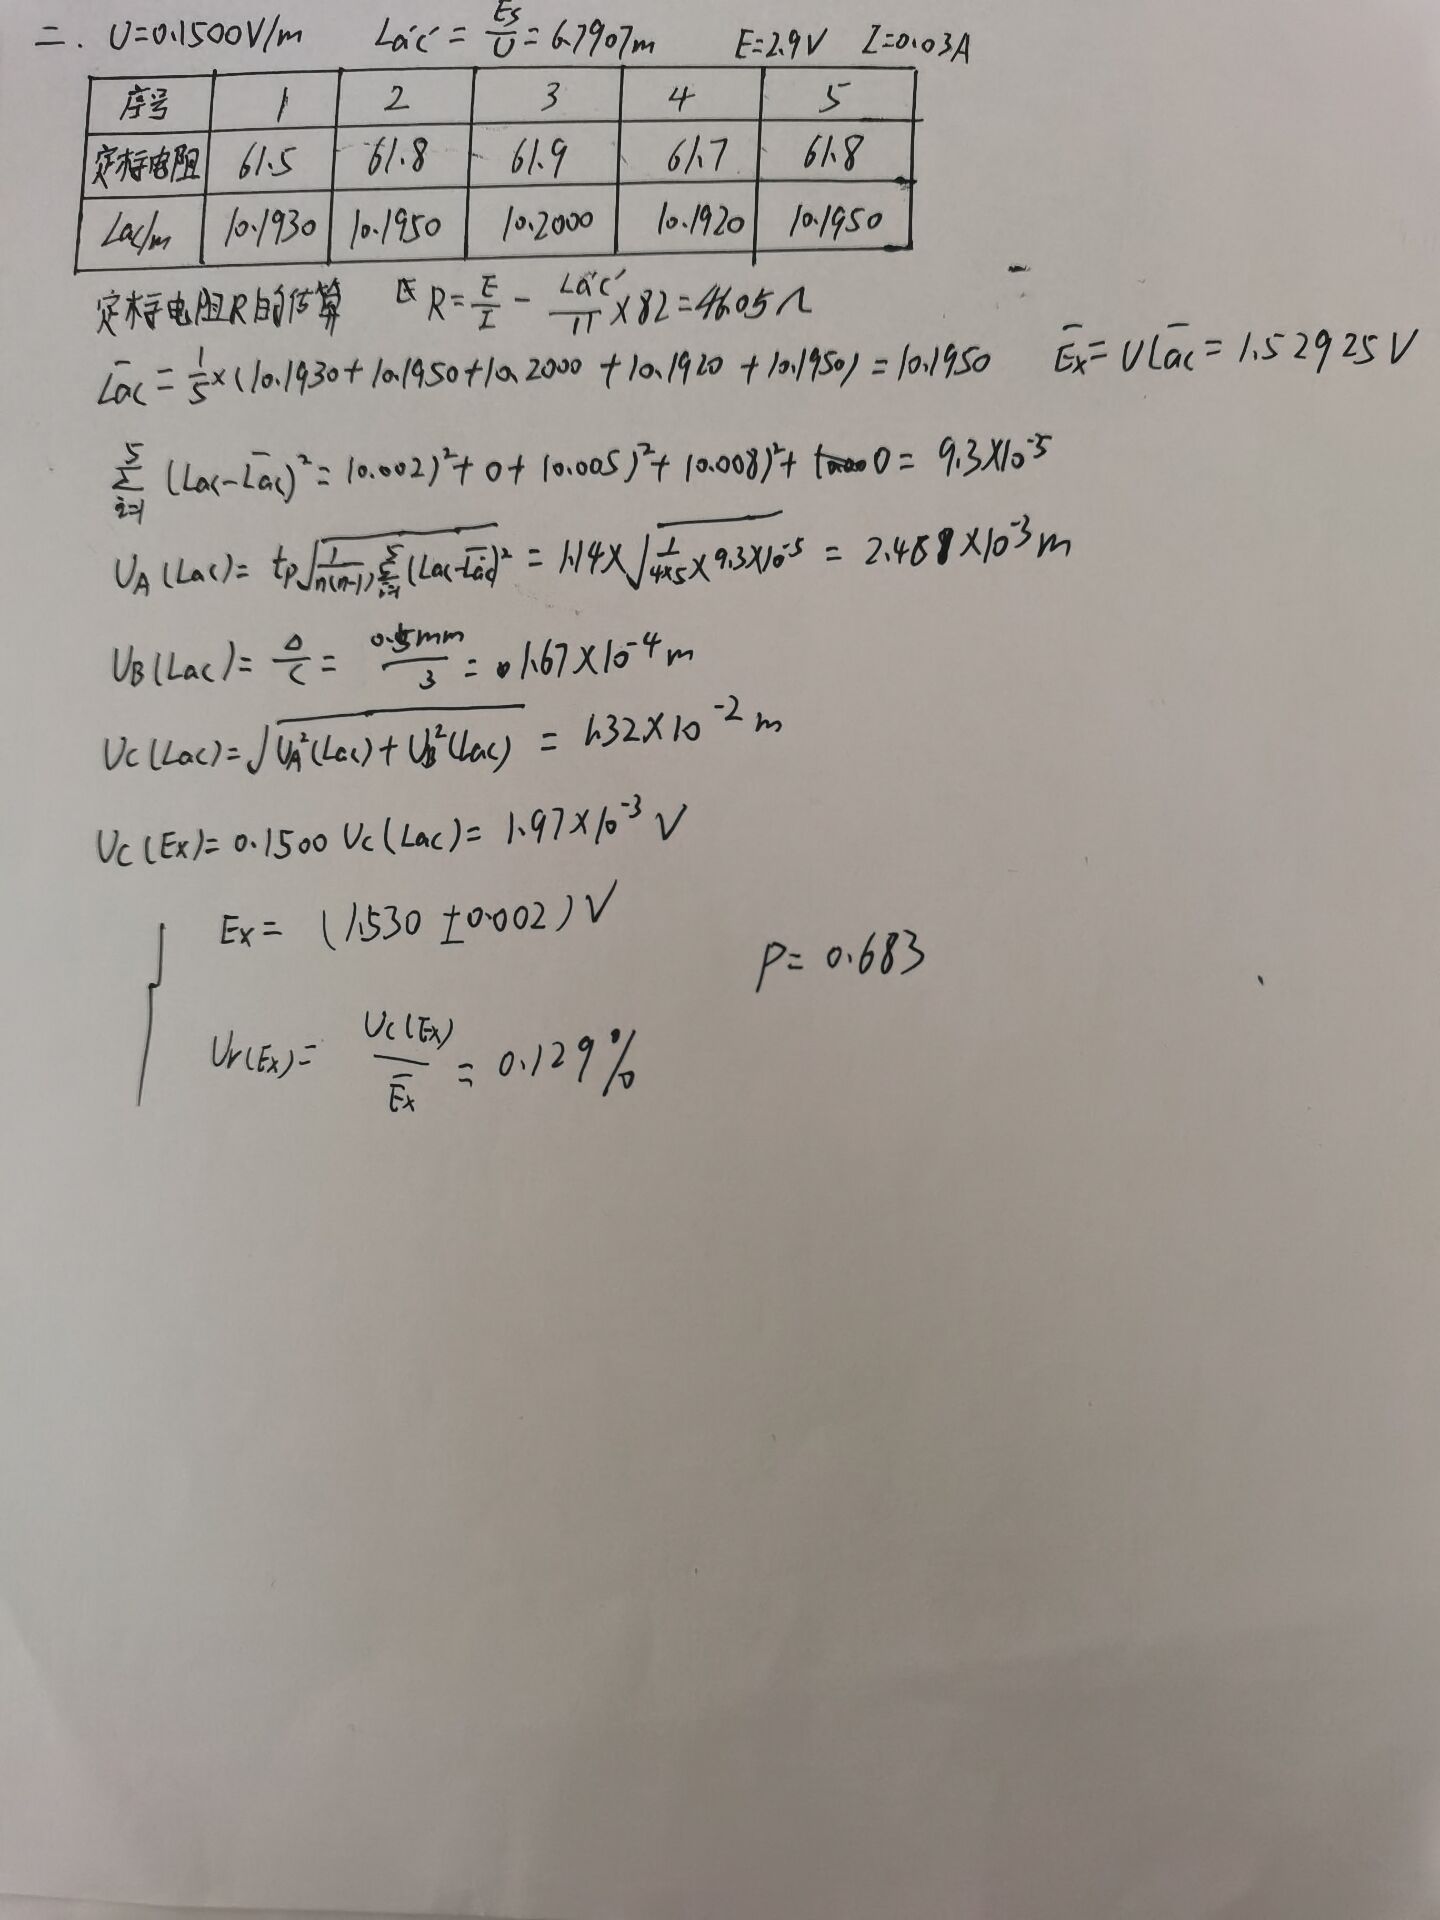 二. U=0.1500V/m La'c' = Es/U = 6.7907m E=2.9V I=0.03A
序号 1 2 3 4 5
定标电阻 61.5 61.8 61.9 61.7 61.8
Lac/m 10.1930 10.1950 10.2000 10.1920 10.1950
定标电阻R的估算 R = E/I - La'c'/11 × 82 = 46.05Ω
L̄ac = 1/5 × (10.1930 + 10.1950 + 10.2000 + 10.1920 + 10.1950) = 10.1950 Ēx = U L̄ac = 1.52925V
∑_{i=1}^{5} (Lac - L̄ac)² = (0.002)² + 0 + (0.005)² + (0.008)² + 0 = 9.3×10⁻⁵
U_A(Lac) = tp√(1/(n(n-1)) ∑_{i=1}^{5} (Lac - L̄ac)²) = 1.14×√(1/(4×5) × 9.3×10⁻⁵) = 2.458×10⁻³m
U_B(Lac) = Δ/C = 0.5mm/3 = 1.67×10⁻⁴m
Uc(Lac) = √(U_A²(Lac) + U_B²(Lac)) = 1.32×10⁻²m
Uc(Ex) = 0.1500 Uc(Lac) = 1.97×10⁻³V
Ex = (1.530 ± 0.002)V
P = 0.683
Ur(Ex) = Uc(Ex)/Ēx = 0.129%